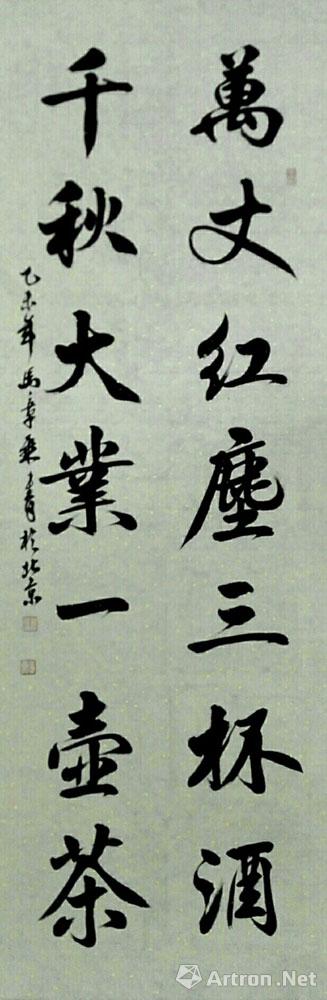 萬丈红塵三杯酒
千秋大業一壶茶
乙未年馬章乘書於北京
Artron.Net